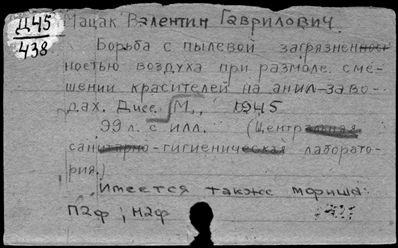 Д45
438
Мацак Валентин Гаврилович.
Борьба с пылевой загрязнен-
ностью воздуха при размоле, сме-
шении красителей на анил-заво-
дах. Дисс. М., 1945
99 л. с илл. (Центральная
санитарно-гигиеническая лаборато-
рия.)
Имеется также мфиша:
П2ф ; Н2ф